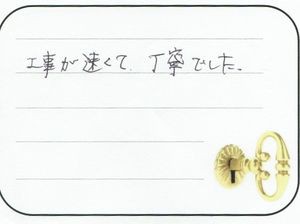 工事が速くて、丁寧でした。